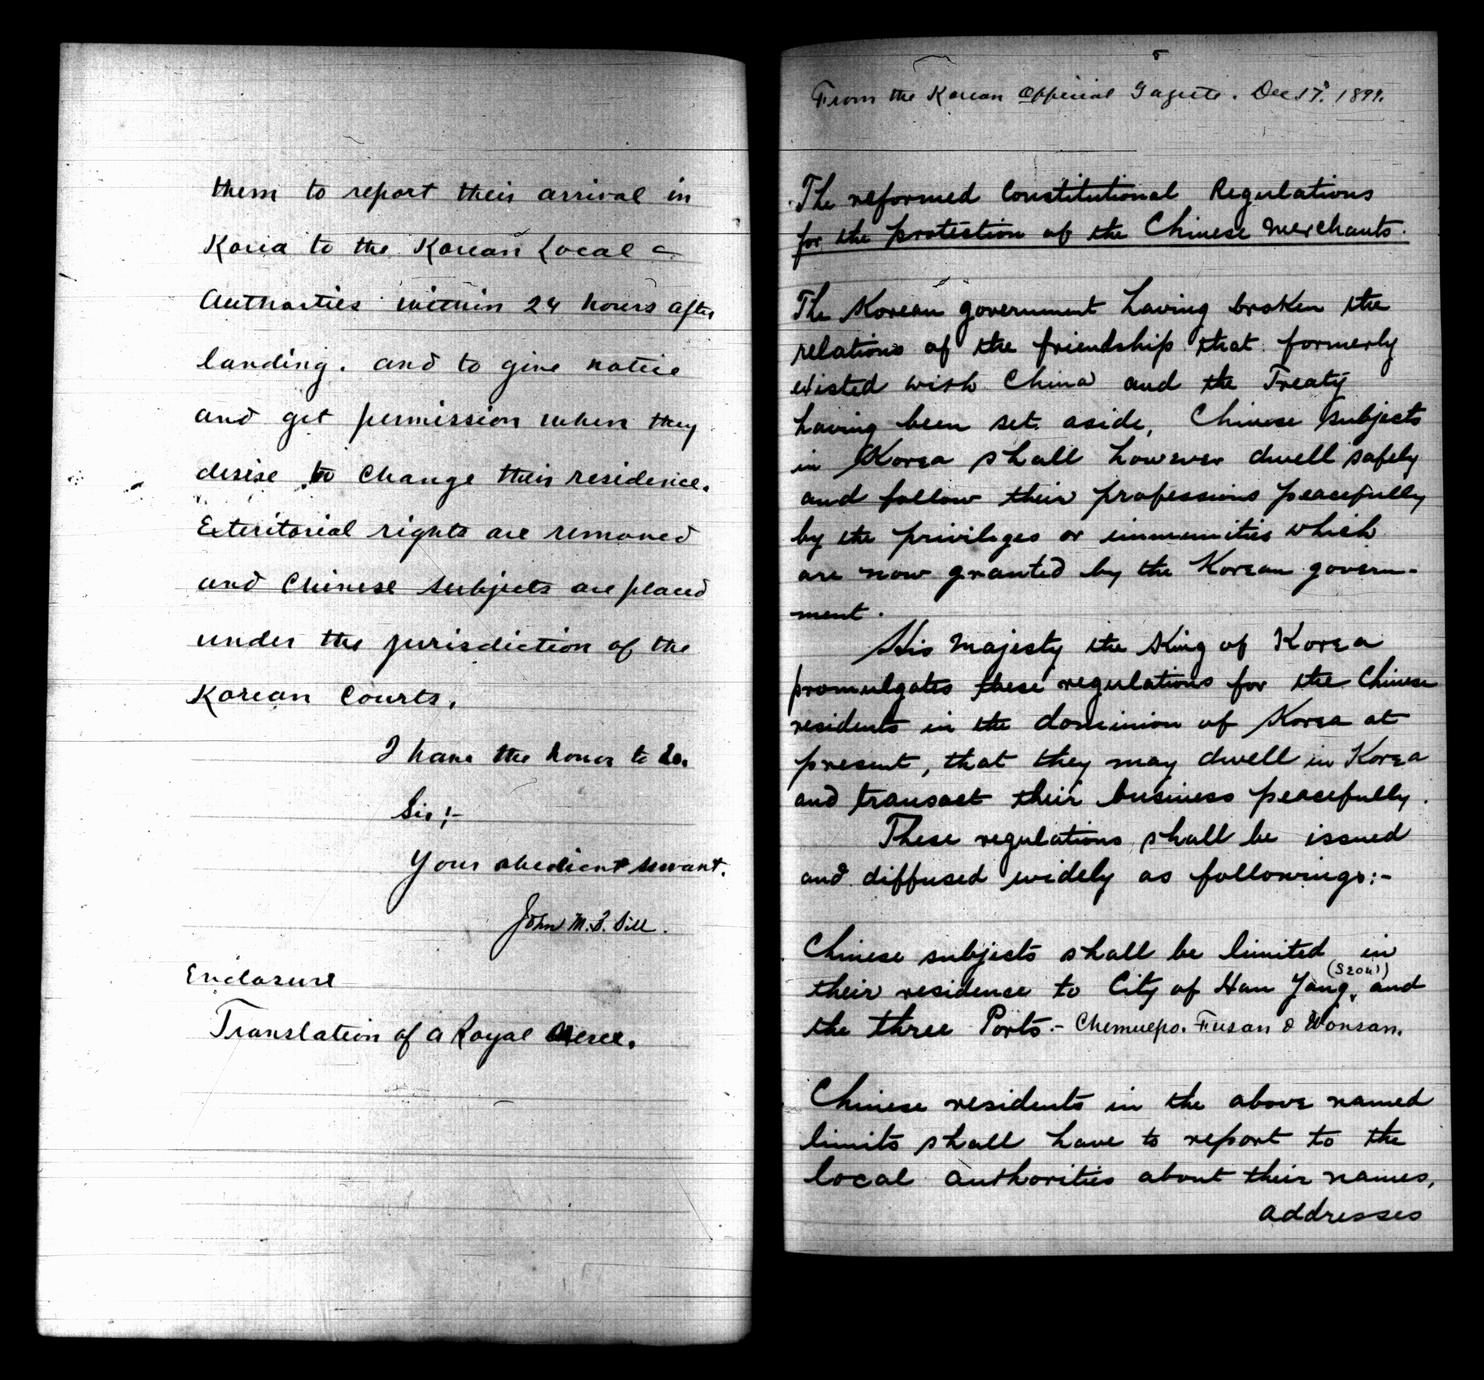 them to report their arrival in
Korea to the Korean Local
Authorties within 24 hours after
landing. and to give notice
and get permission when they
desire to change their residence.
Exteritorial rights are removed
and Chinese subjects are placed
under the jurisdiction of the
Korean Courts.
I have the honor to be.
Sir;-
Your obedient servant.
John M. B. Sill.
Enclosure
Translation of a Royal
From the Korean Official Gazette. Dec 17". 1894.
The reformed Constitutional Regulations
for the protection of the Chinese Merchants.
The Korean government having broken the
relations of the friendship that formerly
existed with China and the Treaty
having been set aside, Chinese subjects
in Korea shall however dwell safely
and follow their professions peacefully
by the privileges or immunities which
are now granted by the Korean govern-
ment.
His Majesty the King of Korea
promulgates these regulations for the Chinese
residents in the dominion of Korea at
present, that they may dwell in Korea
and transact their business peacefully.
These regulations shall be issued
and diffused widely as followings:-
Chinese subjects shall be limited in
their residence to City of Han Yang, (Seoul) and
the three Ports.- Chemulpo. Fusan & Wonsan.
Chinese residents in the above named
limits shall have to report to the
local authorities about their names,
addresses